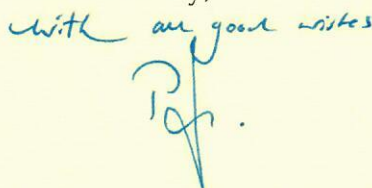 With all good wishes